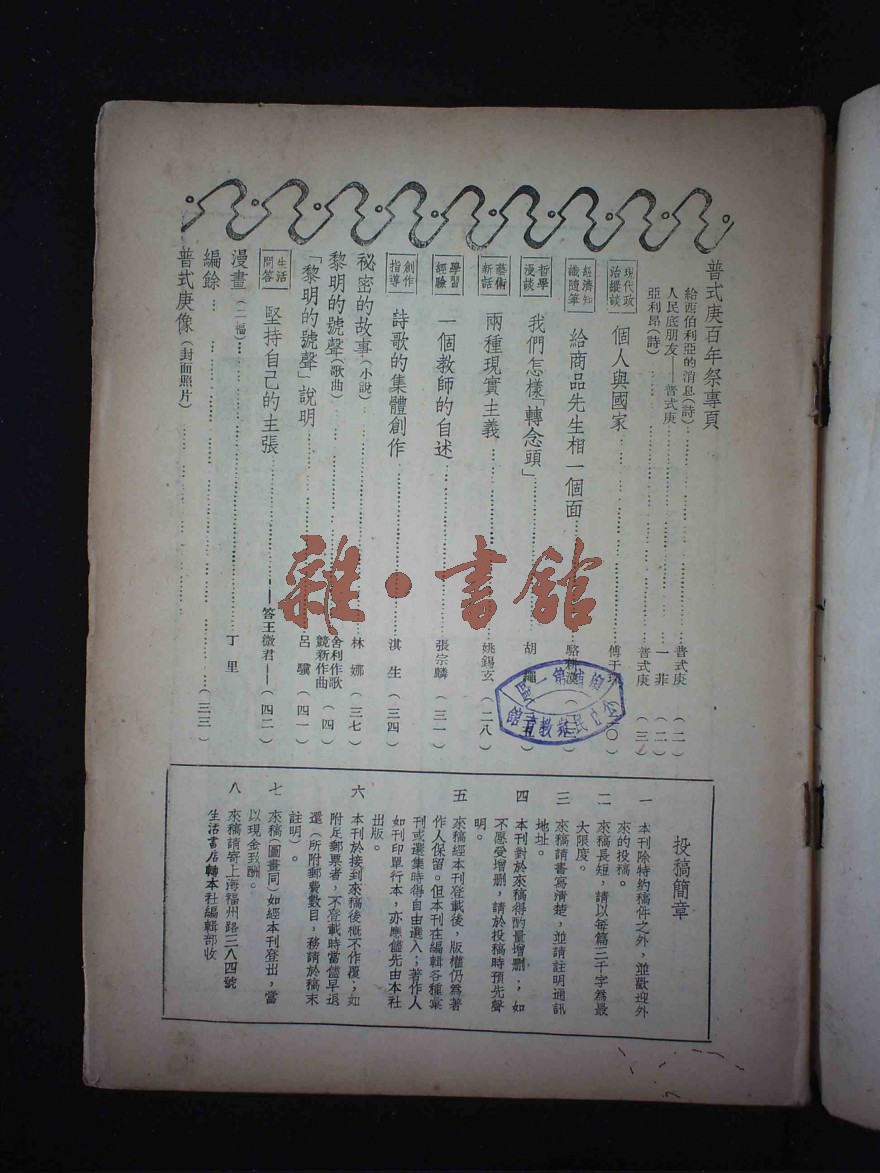 普式庚百年祭專頁
給西伯利亞的消息(詩)……普式庚(二)
人民底朋友——普式庚……一非(二)
亞利昂(詩)……普式庚(三)
現代政治縱談 個人與國家……傅于琛
經濟知識隨筆 給商品先生相一個面……駱耕漠
哲學漫談 我們怎樣「轉念頭」……胡繩
藝術新話 兩種現實主義……姚錫玄(二八)
學習經驗 一個教師的自述……張宗麟(三一)
創作指導 詩歌的集體創作……淇生(三四)
秘密的故事(小說)……林娜(三七)
黎明的號聲(歌曲)……舍利作歌 競新作曲(四)
「黎明的號聲」說明……呂驥(四一)
生活問答 堅持自己的主張……——答王微君——(四二)
漫畫(二幅)……丁里
編餘……(三三)
普式庚像(封面照片)……
投稿簡章
一 本刊除特約稿件之外,並歡迎外
來的投稿。
二 來稿長短,請以每篇三千字為最
大限度。
三 來稿請書寫清楚,並請註明通訊
地址。
四 本刊對於來稿得酌量增刪;如
不愿受增刪,請於投稿時預先聲
明。
五 來稿經本刊登載後,版權仍為著
作人保留。但本刊在編輯各種彙
刊或選集時得自由選入;著作人
如刊印單行本,亦應儘先由本社
出版。
六 本刊於接到來稿後概不作覆;如
附足郵票者,不登載時當儘早退
還(所附郵費數目,務請於稿末
註明)。
七 來稿(圖畫同)如經本刊登出,當
以現金致酬。
八 來稿請寄上海福州路三八四號
生活書店轉本社編輯部收
雜·書館